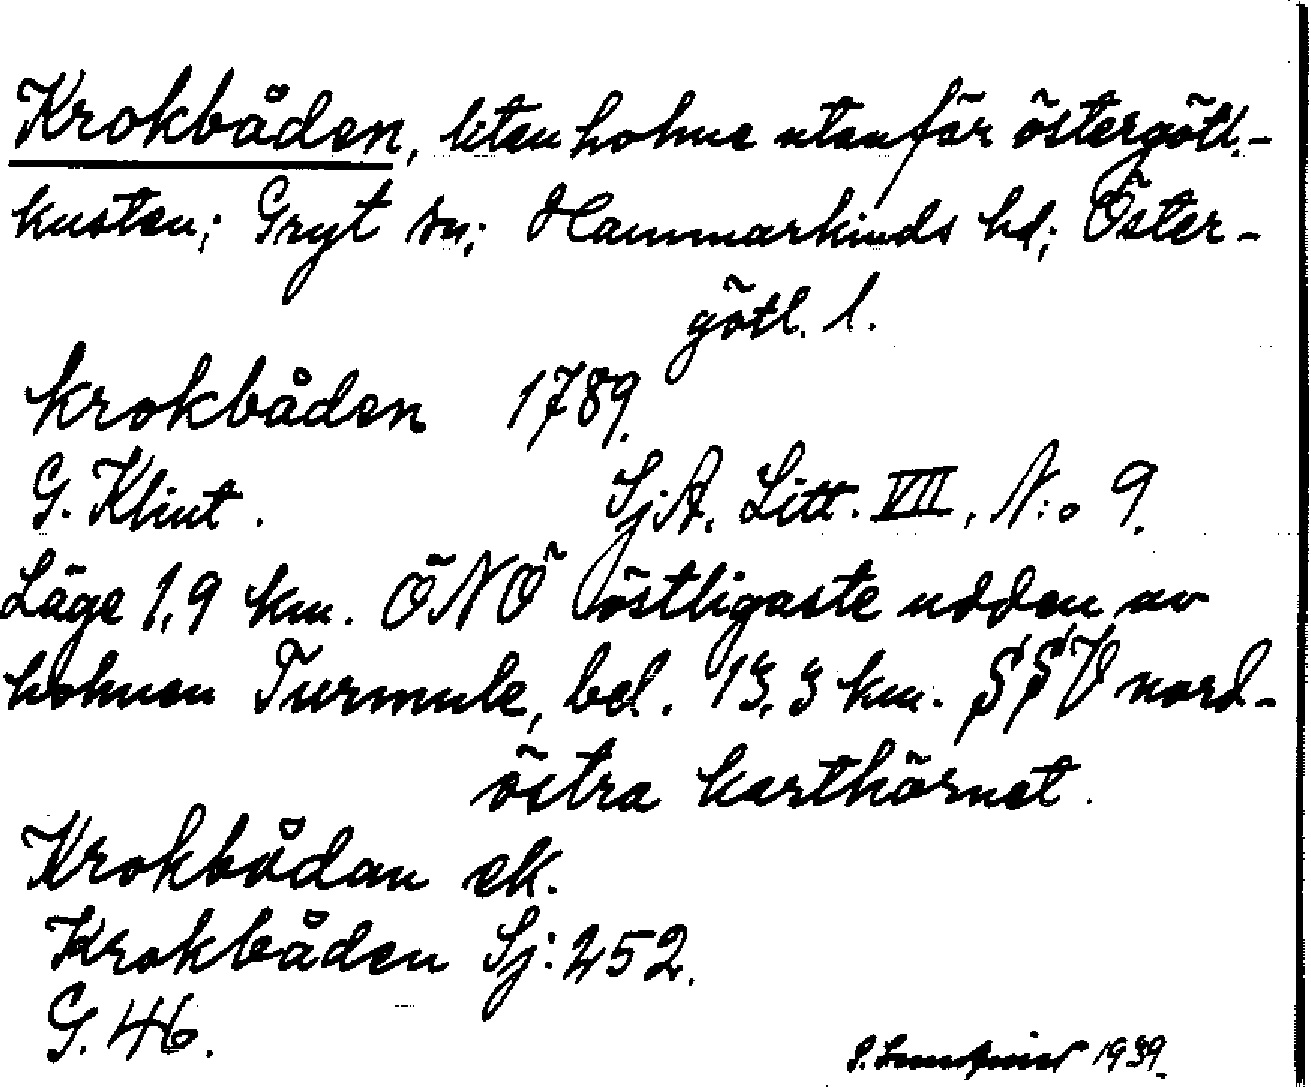 Krokbåden, liten holme utanför östergötl.-
kusten; Gryt sn; Hammarkinds hd; Öster-
götl. l.
Krokbåden 1789.
G. Klint. SjA. Litt. VII, N:o 9.
Läge 1,9 km. ÖNÖ östligaste udden av
holmen Turmule, bel. 13,3 km. SSV nord-
östra karthörnet.
Krokbådan ek.
Krokbåden Sj: 252.
G. 46.
1939.